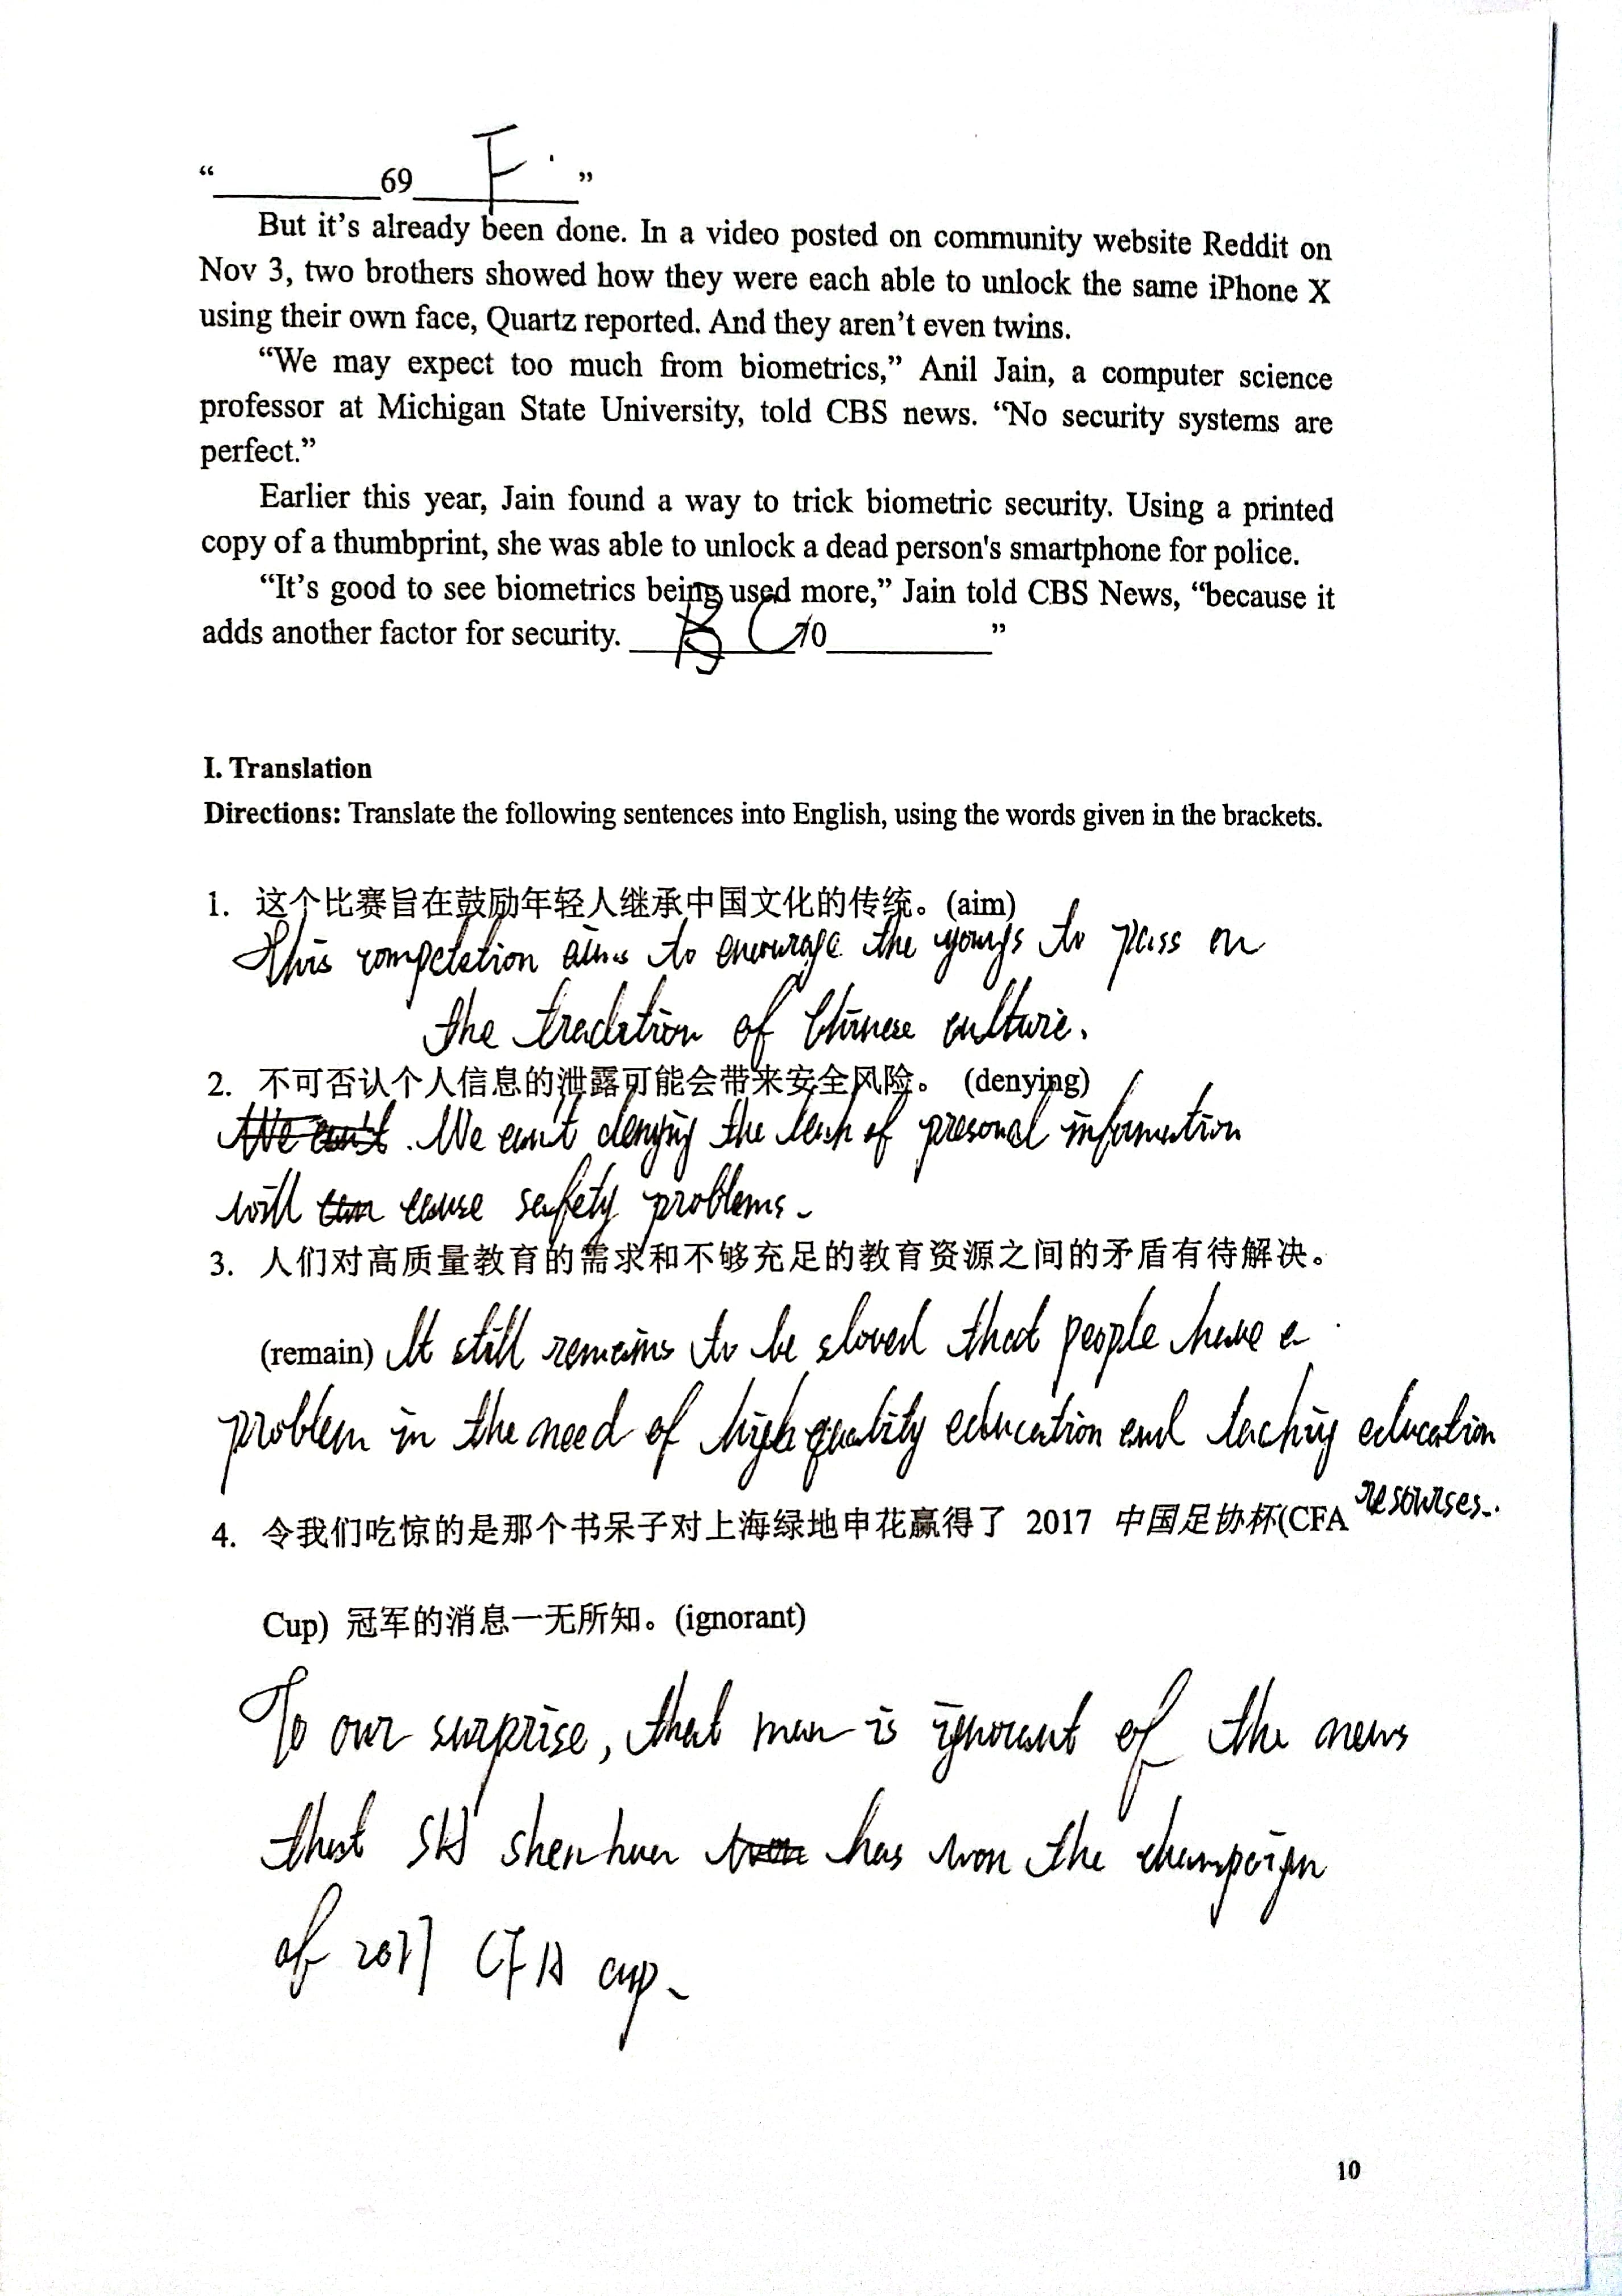 “ 69 F. ”
But it’s already been done. In a video posted on community website Reddit on
Nov 3, two brothers showed how they were each able to unlock the same iPhone X
using their own face, Quartz reported. And they aren’t even twins.
“We may expect too much from biometrics,” Anil Jain, a computer science
professor at Michigan State University, told CBS news. “No security systems are
perfect.”
Earlier this year, Jain found a way to trick biometric security. Using a printed
copy of a thumbprint, she was able to unlock a dead person's smartphone for police.
“It’s good to see biometrics being used more,” Jain told CBS News, “because it
adds another factor for security. C 70 ”
I. Translation
Directions: Translate the following sentences into English, using the words given in the brackets.
1. 这个比赛旨在鼓励年轻人继承中国文化的传统。(aim)
This competetion aims to encourage the youngs to pass on
the tradition of Chinese culture.
2. 不可否认个人信息的泄露可能会带来安全风险。 (denying)
We can't denying the leak of presonal information
will cause safety problems.
3. 人们对高质量教育的需求和不够充足的教育资源之间的矛盾有待解决。
(remain) It still remains to be sloved that people have a
problem in the need of high quality education and education
resourses.
4. 令我们吃惊的是那个书呆子对上海绿地申花赢得了 2017 中国足协杯(CFA
Cup) 冠军的消息一无所知。(ignorant)
To our surprise, that man is ignorant of the news
that SH shenhua has won the champaign
of 2017 CFA cup.
10